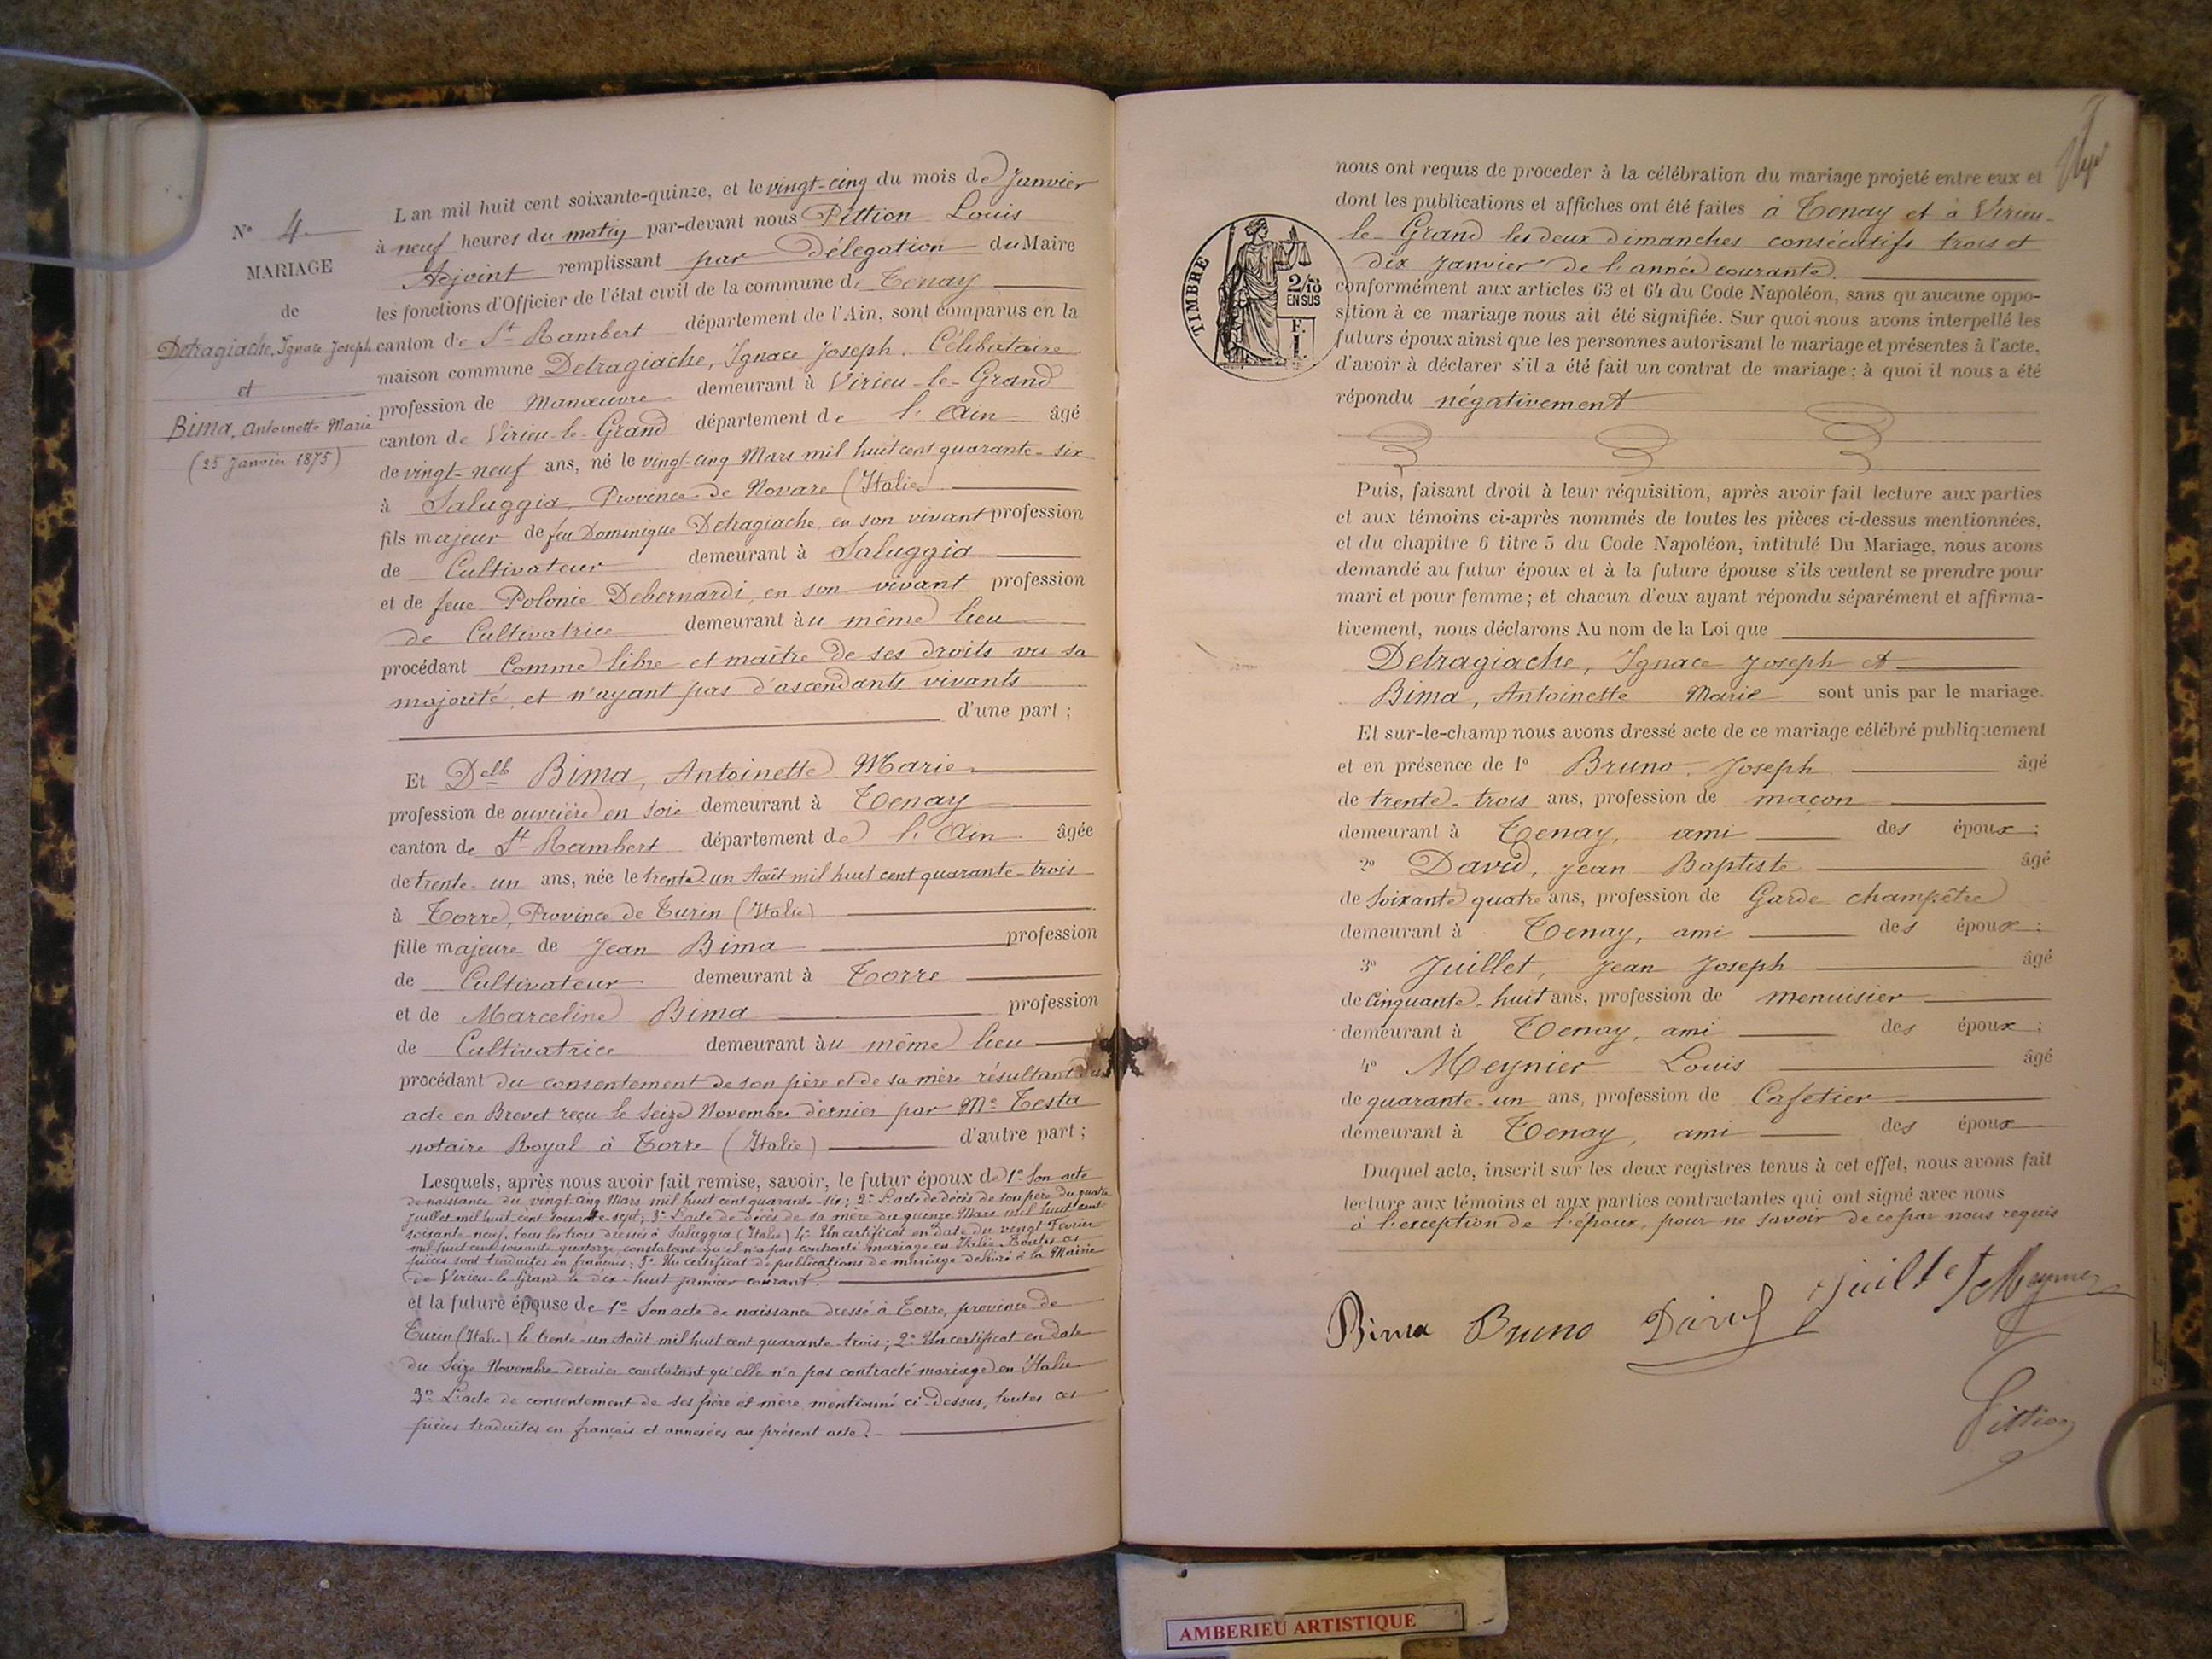 N° 4
MARIAGE
de
Detragiache, Ignace Joseph
et
Bima, Antoinette Marie
(25 Janvier 1875)
L an mil huit cent soixante-quinze, et le vingt-cinq du mois de Janvier
à neuf heures du matin par-devant nous Pittion Louis
Adjoint remplissant par Délégation du Maire
les fonctions d'Officier de l'état civil de la commune de Tenay
canton de St Rambert département de l'Ain, sont comparus en la
maison commune Detragiache, Ignace Joseph. Célibataire
profession de Manœuvre demeurant à Virieu-le-Grand
canton de Virieu-le-Grand département de l'Ain âgé
de vingt-neuf ans, né le vingt-cinq Mars mil huit cent quarante-six
à Saluggia, Province de Novare (Italie)
fils majeur de feu Dominique Detragiache, en son vivant profession
de Cultivateur demeurant à Saluggia
et de feue Polonie Debernardi, en son vivant profession
de Cultivatrice demeurant au même lieu
procédant Comme libre et maître de ses droits vu sa
majorité, et n'ayant pas d'ascendants vivants
d'une part ;
Et Delle Bima, Antoinette Marie
profession de ouvrière en soie demeurant à Tenay
canton de St Rambert département de l'Ain âgée
de trente-un ans, née le trente-un Août mil huit cent quarante-trois
à Torre, Province de Turin (Italie)
fille majeure de Jean Bima profession
de Cultivateur demeurant à Torre
et de Marceline Bima profession
de Cultivatrice demeurant au même lieu
procédant du consentement de son père et de sa mère résultant d'un
acte en Brevet reçu le Seize Novembre dernier par Me Testa
notaire Royal à Torre (Italie) d'autre part ;
Lesquels, après nous avoir fait remise, savoir, le futur époux de 1° Son acte
de naissance du vingt-cinq Mars mil huit cent quarante-six ; 2° L'acte de décès de son père du quatre
Juillet mil huit cent soixante-sept ; 3° L'acte de décès de sa mère du quinze Mars mil huit cent
soixante neuf, tous les trois dressés à Saluggia (Italie) 4° Un certificat en date du vingt Février
mil huit cent soixante quatorze, constatant qu'il n'a pas contracté mariage en Italie. Toutes ces
pièces sont traduites en français ; 5° Un certificat de publications de mariage délivré à la Mairie
de Virieu-le-Grand le dix-huit janvier courant.
et la future épouse de 1° Son acte de naissance dressé à Torre, province de
Turin (Italie) le trente-un Août mil huit cent quarante-trois ; 2° Un certificat en date
du Seize Novembre dernier constatant qu'elle n'a pas contracté mariage en Italie
3° L'acte de consentement de ses père et mère mentionné ci-dessus, toutes ces
pièces traduites en français et annexées au présent acte.
nous ont requis de proceder à la célébration du mariage projeté entre eux et
dont les publications et affiches ont été faites à Tenay et à Virieu-
le-Grand les deux dimanches consécutifs trois et
dix Janvier de l'année courante.
TIMBRE
2/10
EN SUS
F.
I.
conformément aux articles 63 et 64 du Code Napoléon, sans qu aucune oppo-
sition à ce mariage nous ait été signifiée. Sur quoi nous avons interpellé les
futurs époux ainsi que les personnes autorisant le mariage et présentes à l'acte,
d'avoir à déclarer s'il a été fait un contrat de mariage ; à quoi il nous a été
répondu négativement
Puis, faisant droit à leur réquisition, après avoir fait lecture aux parties
et aux témoins ci-après nommés de toutes les pièces ci-dessus mentionnées,
et du chapitre 6 titre 5 du Code Napoléon, intitulé Du Mariage, nous avons
demandé au futur époux et à la future épouse s'ils veulent se prendre pour
mari et pour femme ; et chacun d'eux ayant répondu séparément et affirma-
tivement, nous déclarons Au nom de la Loi que
Detragiache, Ignace Joseph et
Bima, Antoinette Marie sont unis par le mariage.
Et sur-le-champ nous avons dressé acte de ce mariage célébré publiquement
et en présence de 1° Bruno, Joseph âgé
de trente-trois ans, profession de maçon
demeurant à Tenay, ami des époux ;
2° David, Jean Baptiste âgé
de soixante quatre ans, profession de Garde champêtre
demeurant à Tenay, ami des époux ;
3° Juillet, Jean Joseph âgé
de Cinquante-huit ans, profession de menuisier
demeurant à Tenay, ami des époux ;
4° Meynier Louis âgé
de quarante-un ans, profession de Cafetier
demeurant à Tenay, ami des époux
Duquel acte, inscrit sur les deux registres tenus à cet effet, nous avons fait
lecture aux témoins et aux parties contractantes qui ont signé avec nous
à l'exception de l'époux, pour ne savoir de ce par nous requis
Bima Bruno David Juillet Meynier
Pittion
AMBERIEU ARTISTIQUE